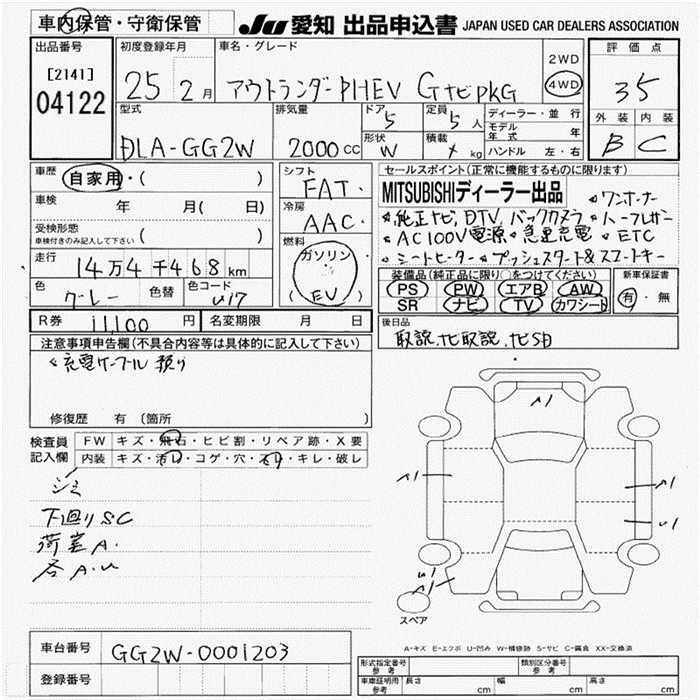 車内保管・守衛保管
JU 愛知 出品申込書 JAPAN USED CAR DEALERS ASSOCIATION
出品番号
[2141]
04122
初度登録年月
25 2月
車名・グレード
アウトランダーPHEV GナビPKG
2WD
4WD
評価点
3.5
外装 内装
B C
型式
DLA-GG2W
排気量
2000 CC
ドア
5
形状
W
定員
5人
積載
kg
ディーラー・並行
モデル年式 年
ハンドル 左・右
車歴
自家用・( )
車検 年 月( 日)
受検形態
車検付きのみ記入して下さい ( )
走行
14万4千468km
色
グレー
色替
色コード
U17
シフト
FAT
冷房
AAC
燃料
ガソリン
(EV)
セールスポイント(正常に機能するものに限ります)
MITSUBISHIディーラー出品 ワンオーナー
純正ナビ,DTV,バックカメラ ハーフレザー
AC100V電源 急速充電 ETC
シートヒーター プッシュスタート&スマートキー
装備品(純正品に限り○をつけてください)
PS PW エアB AW
SR ナビ TV カワシート
新車保証書
有・無
R券 11,100 円
名変期限 月 日
後日品
取説,ナビ取説,ナビSD
注意事項申告欄(不具合内容等は具体的に記入して下さい)
充電ケーブル 預り
修復歴 有 (箇所 )
検査員記入欄
FW キズ・飛石・ヒビ割・リペア跡・X要
内装 キズ・汚レ・コゲ・穴・スレ・キレ・破レ
シミ
下廻りSC
荷室A.
各A.U
A1
A1
A1
U1
U1
A1
スペア
A-キズ E-エクボ U-凹み W-補修跡 S-サビ C-腐食 XX-交換済
車台番号 GG2W-0001203
登録番号
形式指定番号 参考
類別区分番号 参考
車庫証明用 参考 長さ cm 幅 cm 高さ cm